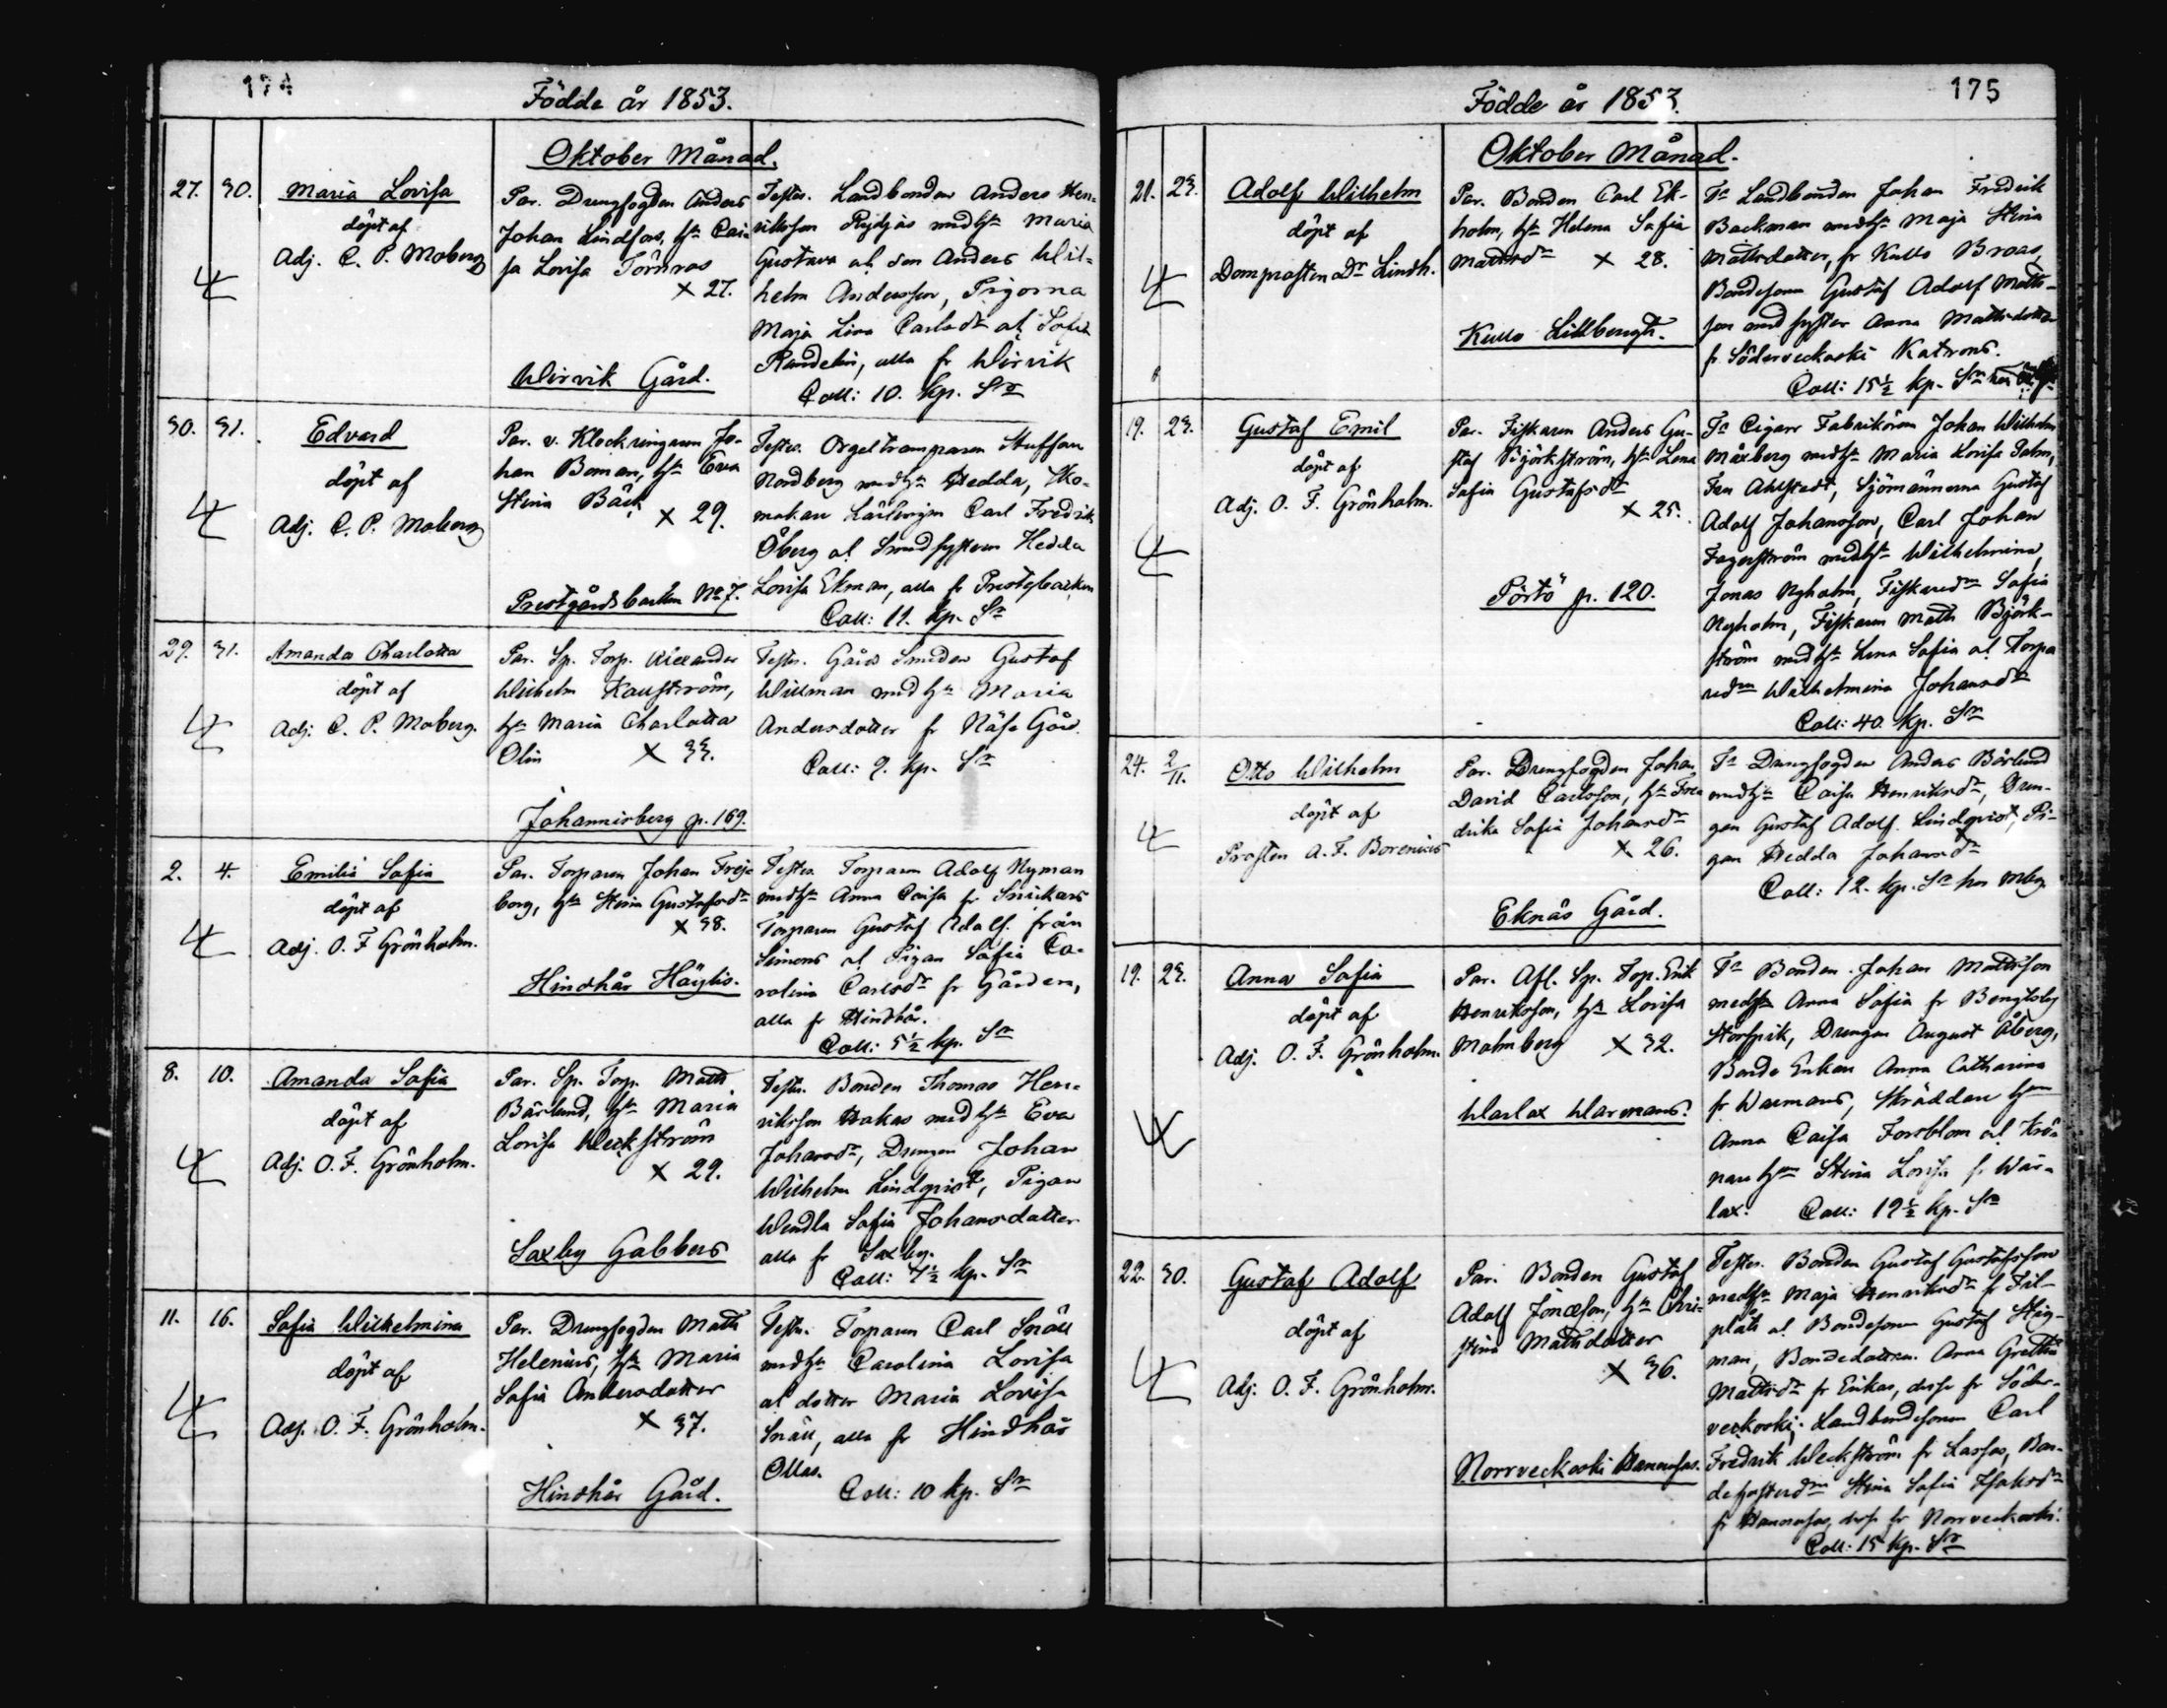 174
Födde år 1853.
Oktober Månad.
27. 30. Maria Lovisa
döpt af
Adj. C. P. Moberg
Par. Drengfogden Anders
Johan Lindfors, hu Cai-
sa Lovisa Törnros
x 27.
Wirvik Gård.
Testes. Landbonden Anders Hen-
riksson med hu Maria
Gustava al son Anders Wil-
helm Andersson, Pigorna
Maja Lisa Carlsdr al Sofia
Randelin, alla fr Wirvik
Coll: 10. kp. Sr
30. 31. Edvard
döpt af
Adj. C. P. Moberg
Par. v. Klockringaren Jo-
han Boman, hu Eva
Stina Bäck
x 29.
Prestgårdsbacken No 7.
Testes. Orgeltramparen Staffan
Nordberg med hu Hedda, Sko-
makare Lärlingen Carl Fredrik
Öberg al Smedsystern Hedda
Lovisa Ekman, alla fr Prestgbacken
Coll: 11. kp. Sr
29. 31. Amanda Charlotta
döpt af
Adj. C. P. Moberg.
Par. Sp. Torp. Alexander
Wilhelm Kauström,
hu Maria Charlotta
Olin x 33.
Johannisberg p. 169.
Testes. Gårds Smeden Gustaf
Willman med hu Maria
Andersdotter fr Näse Gård.
Coll: 9. kp. Sr
2. 4. Emilia Sofia
döpt af
Adj. O. F. Grönholm.
Par. Torparen Johan Frej-
borg, hu Stina Gustafsdr
x 38.
Hindhår Häylis.
Testes. Torparen Adolf Nyman
med hu Anna Caisa fr Snickars
Torparen Gustaf Adolf från
Simons al Pigan Sofia Ca-
rolina Carlsdr fr Gården,
alla fr Hindhår.
Coll: 5½ kp. Sr
8. 10. Amanda Sofia
döpt af
Adj. O. F. Grönholm.
Par. Sp. Torp. Matts
Bärlund, hu Maria
Lovisa Weckström
x 29.
Saxby Gabbers
Testes. Bonden Thomas Hen-
riksson Hakas med hu Eva
Johansdr, Drengen Johan
Wilhelm Lindqvist, Pigan
Wendla Sofia Johansdotter
alla fr Saxby.
Coll: 7½ kp. Sr
11. 16. Sofia Wilhelmina
döpt af
Adj. O. F. Grönholm.
Par. Drengfogden Matts
Helenius, hu Maria
Sofia Andersdotter
x 37.
Hindhår Gård.
Testes. Torparen Carl Snäll
med hu Carolina Lovisa
al dotter Maria Lovisa
Snäll, alla fr Hindhår
Ollas.
Coll: 10 kp. Sr
175
Födde år 1853.
Oktober Månad.
21. 23. Adolf Wilhelm
döpt af
Domprosten Dr Lindh.
Par. Bonden Carl Ek-
holm, hu Helena Sofia
Mattsdr x 28.
Kullo Lillbengts.
Ts Landbonden Johan Fredrik
Backman med hu Maja Stina
Mattsdotter, fr Kullo Broas,
Bondesonen Gustaf Adolf Matts-
son med syster Anna Mattsdotter
fr Söderveckoski Katrons.
Coll: 15½ kp. Sr
19. 23. Gustaf Emil
döpt af
Adj. O. F. Grönholm.
Par. Fiskaren Anders Gu-
staf Björkström, hu Lena
Sofia Gustafsdr
x 25.
Pörtö p. 120.
Ts Cigarr Fabrikören Johan Wilhelm
Måxberg med hu Maria Lovisa Palm,
Fru Ahlstedt, Sjömännerna Gustaf
Adolf Johansson, Carl Johan
Fagerström med hu Wilhelmina,
Jonas Nyholm, Fiskaredr Sofia
Nyholm, Fiskaren Matts Björk-
ström med hu Lena Sofia al Torpa
redr Wilhelmina Johansdr
Coll: 40. kp. Sr
24. 2/11. Otto Wilhelm
döpt af
Prosten A. F. Borenius
Par. Drengfogden Johan
David Carlsson, hu Fred
drika Sofia Johansdr
x 26.
Eknäs Gård.
Ts Drengfogden Anders Bärlund
med hu Caisa Henriksdr, Dren-
gen Gustaf Adolf Lindqvist, Pi-
gan Hedda Johansdr
Coll: 12. kp. Sr hos Mbg.
19. 23. Anna Sofia
döpt af
Adj. O. F. Grönholm.
Par. Afl. Sp. Torp. Erik
Henriksson, hu Lovisa
Malmberg x 32.
Warlax Warmans.
Ts Bonden Johan Mattsson
med hu Anna Sofia fr Bengtsby
Storspik, Drengen August Åberg,
Bonde Enkan Anna Catharina
fr Warmans, Skräddare hun
Anna Caisa Forsblom al Krö-
nare hun Stina Lovisa fr War-
lax. Coll: 12½ kp. Sr
22. 30. Gustaf Adolf
döpt af
Adj. O. F. Grönholm.
Par. Bonden Gustaf
Adolf Jönsson, hu Chri-
stina Mattsdotter
x 36.
Norrveckoski Hannusas.
Testes. Bonden Gustaf Gustafsson
med hu Maja Henriksdr fr Fil-
plåts al Bondesonen Gustaf Stig-
man, Bondedottren Anna Gretha
Mattsdr fr Erikas, desse fr Söder-
veckoski; Landbondesonen Carl
Fredrik Weckström fr Lassas, Bon-
dehusterdr Stina Sofia Isaksdr
fr Hannusas, desse fr Norrveckoski.
Coll: 15 kp. Sr